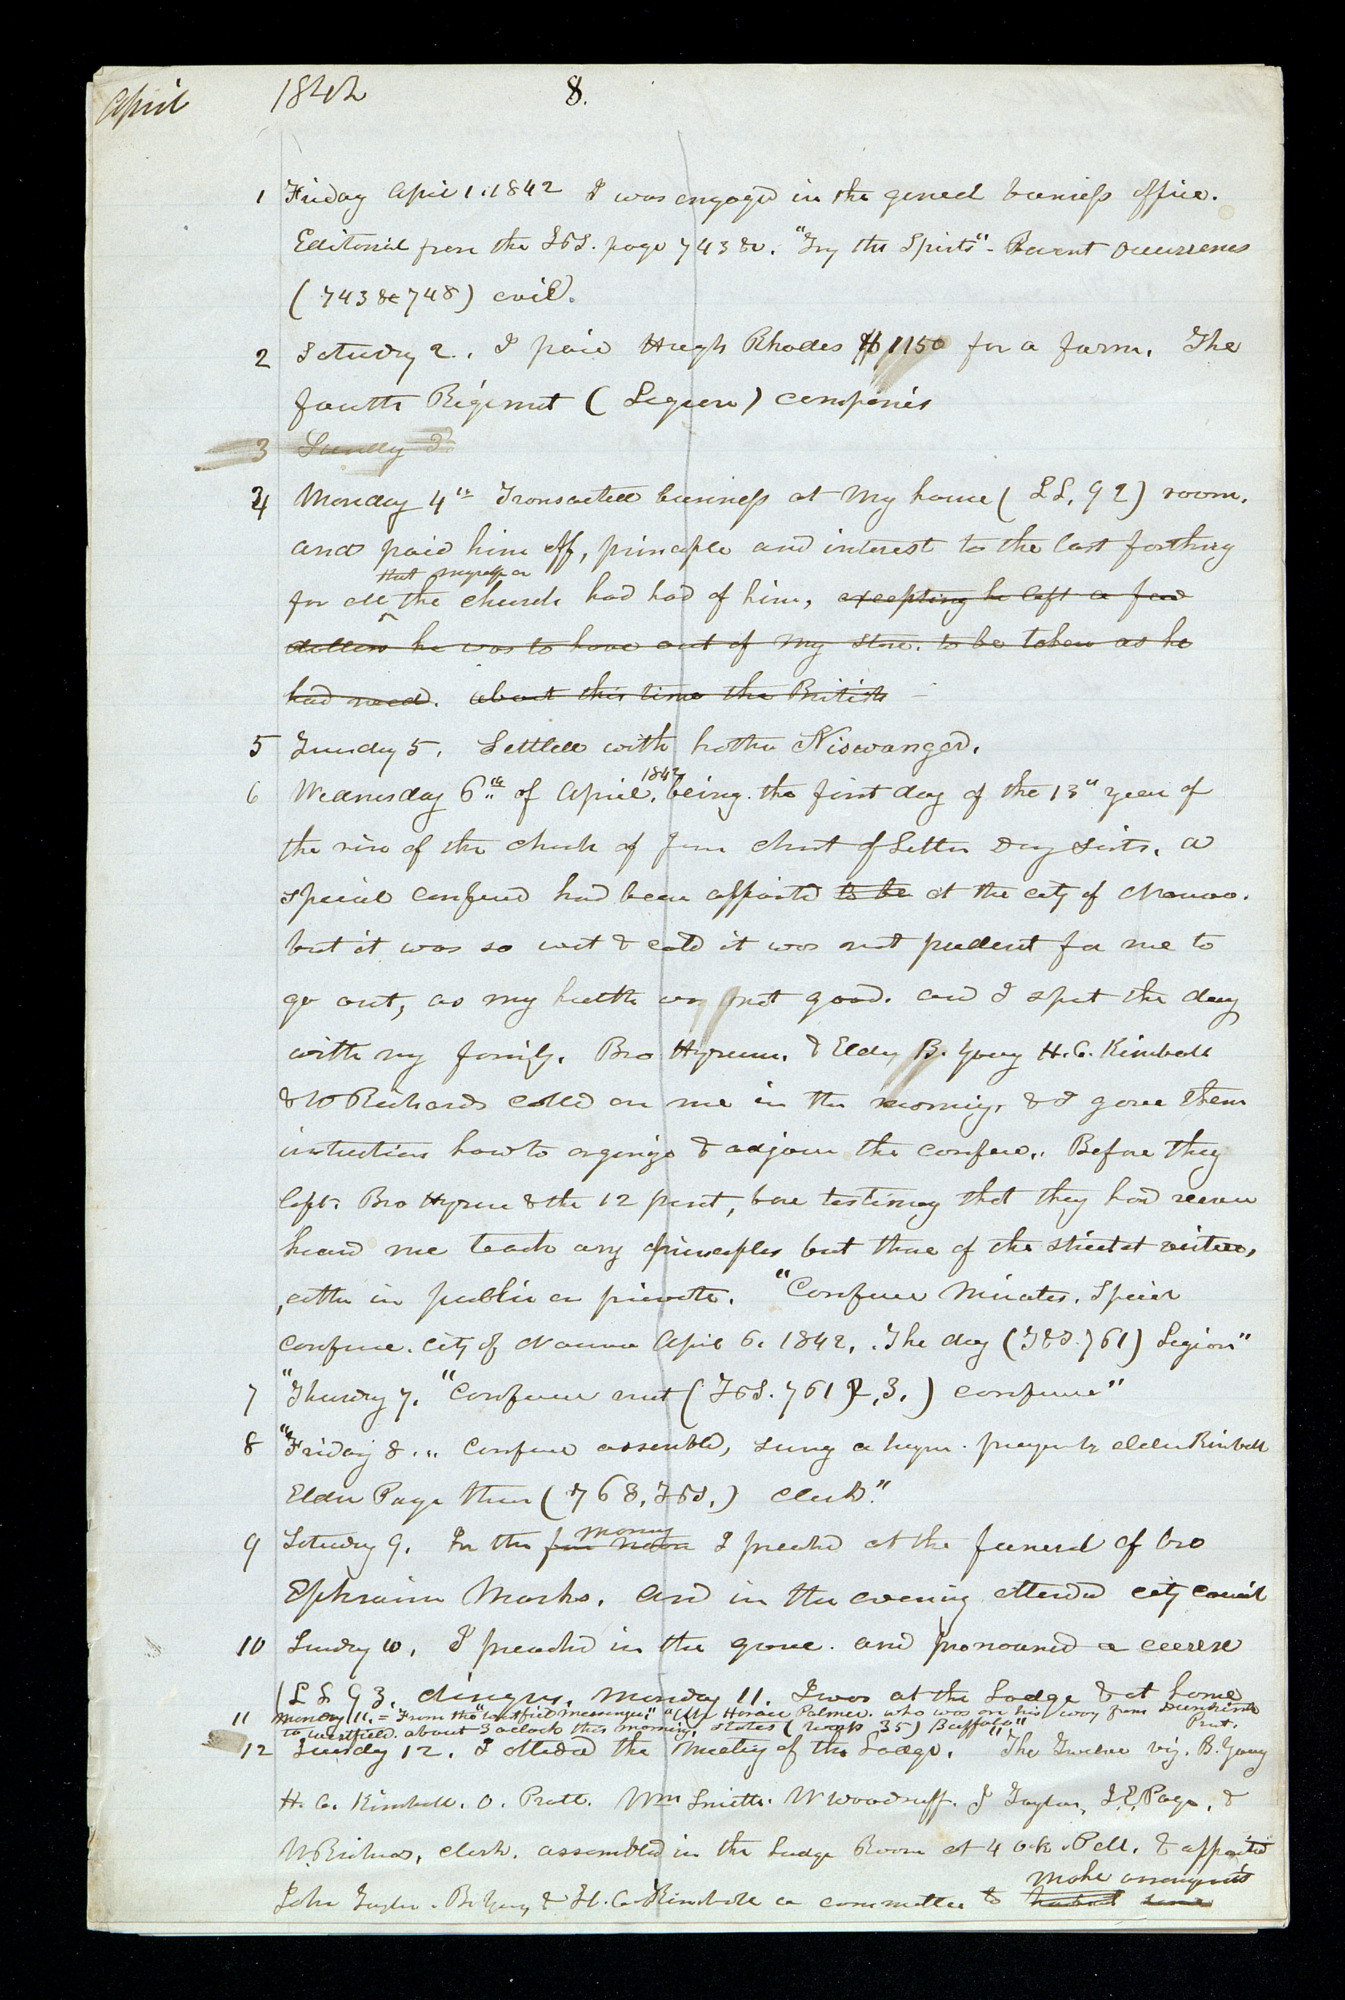 April 1842 8.
1 Friday April 1. 1842 I was engaged in the genel business office.
Editorial from the T&S. page 743 &c. "Try the Spirits" - Recent Occurrenes
(743 & 748) evil.
2 Saturdy 2. I paid Hugh Rhodes $1150 for a farm. The
fourth Regimnt (Legion) companies
3 Sunday 3
4 Monday 4th Transacted business at my house (L L, 92) room.
and paid him off, principle and interest to the last farthing
that myself or
for all the church had had of him, excepting he left a few
dollars he was to have out of my store. to be taken as he
had need. about this time the British —
5 Tuesday 5. Settled with brother Niswanger.
1842
6 Wednesday 6th of April, being the first day of the 13th year of
the rise of the church of Jesus christ of Latter Day Saints, a
special conference had been appointed to be at the city of Nauvoo.
but it was so wet & cold it was not prudent for me to
go out, as my health was not good. and I spent the day
with my family. Bro Hyrum. & Elders B. Young H. C. Kimball
& W Richards called on me in the morning, & I gave them
instructions how to organize & adjourn the conference. Before they
left. Bro Hyrum & the 12 present, bore testimony that they had never
heard me teach any principles but those of the strictest virtue,
either in public or private. "Conference Minutes. Special
conference. city of Nauvoo April 6. 1842. . The day (T&S. 761) Legion"
7 "Thursday 7. "Conference met (T&S. 761 2, 3.) conference"
8 "Friday 8. .. Conference assembled, sung a hymn. prayer by elder Kimball
Elder Page then (768, T&S,) clerk."
morning
9 Saturday 9. In the fore noon I preached at the funeral of bro
Ephraim Marks. and in the evening attended city council
10 Sunday 10. I preached in the grove. and pronounced a curse
(L L 93. clingers. Monday 11. I was at the Lodge & at home
11 Monday 11. = From the "Westfield Messenger." "Mr Horace Palmer. who was on his way from Dunkirk
to Westfield. about 3 oclock this morning, states (Wasp 35) Buffalo" Print.
12 Tuesday 12. I attended the meeting of the Lodge. "The Twelve viz. B. Young
H. C. Kimball. O. Pratt. Wm Smith. W Woodruff. J Taylor, J. E. Page, &
W. Richards, clerk. assembled in the Lodge Room at 4 o.k. P.M. & appointed
make arrangments
John Taylor. B. Young & H. C. Kimball a committee to